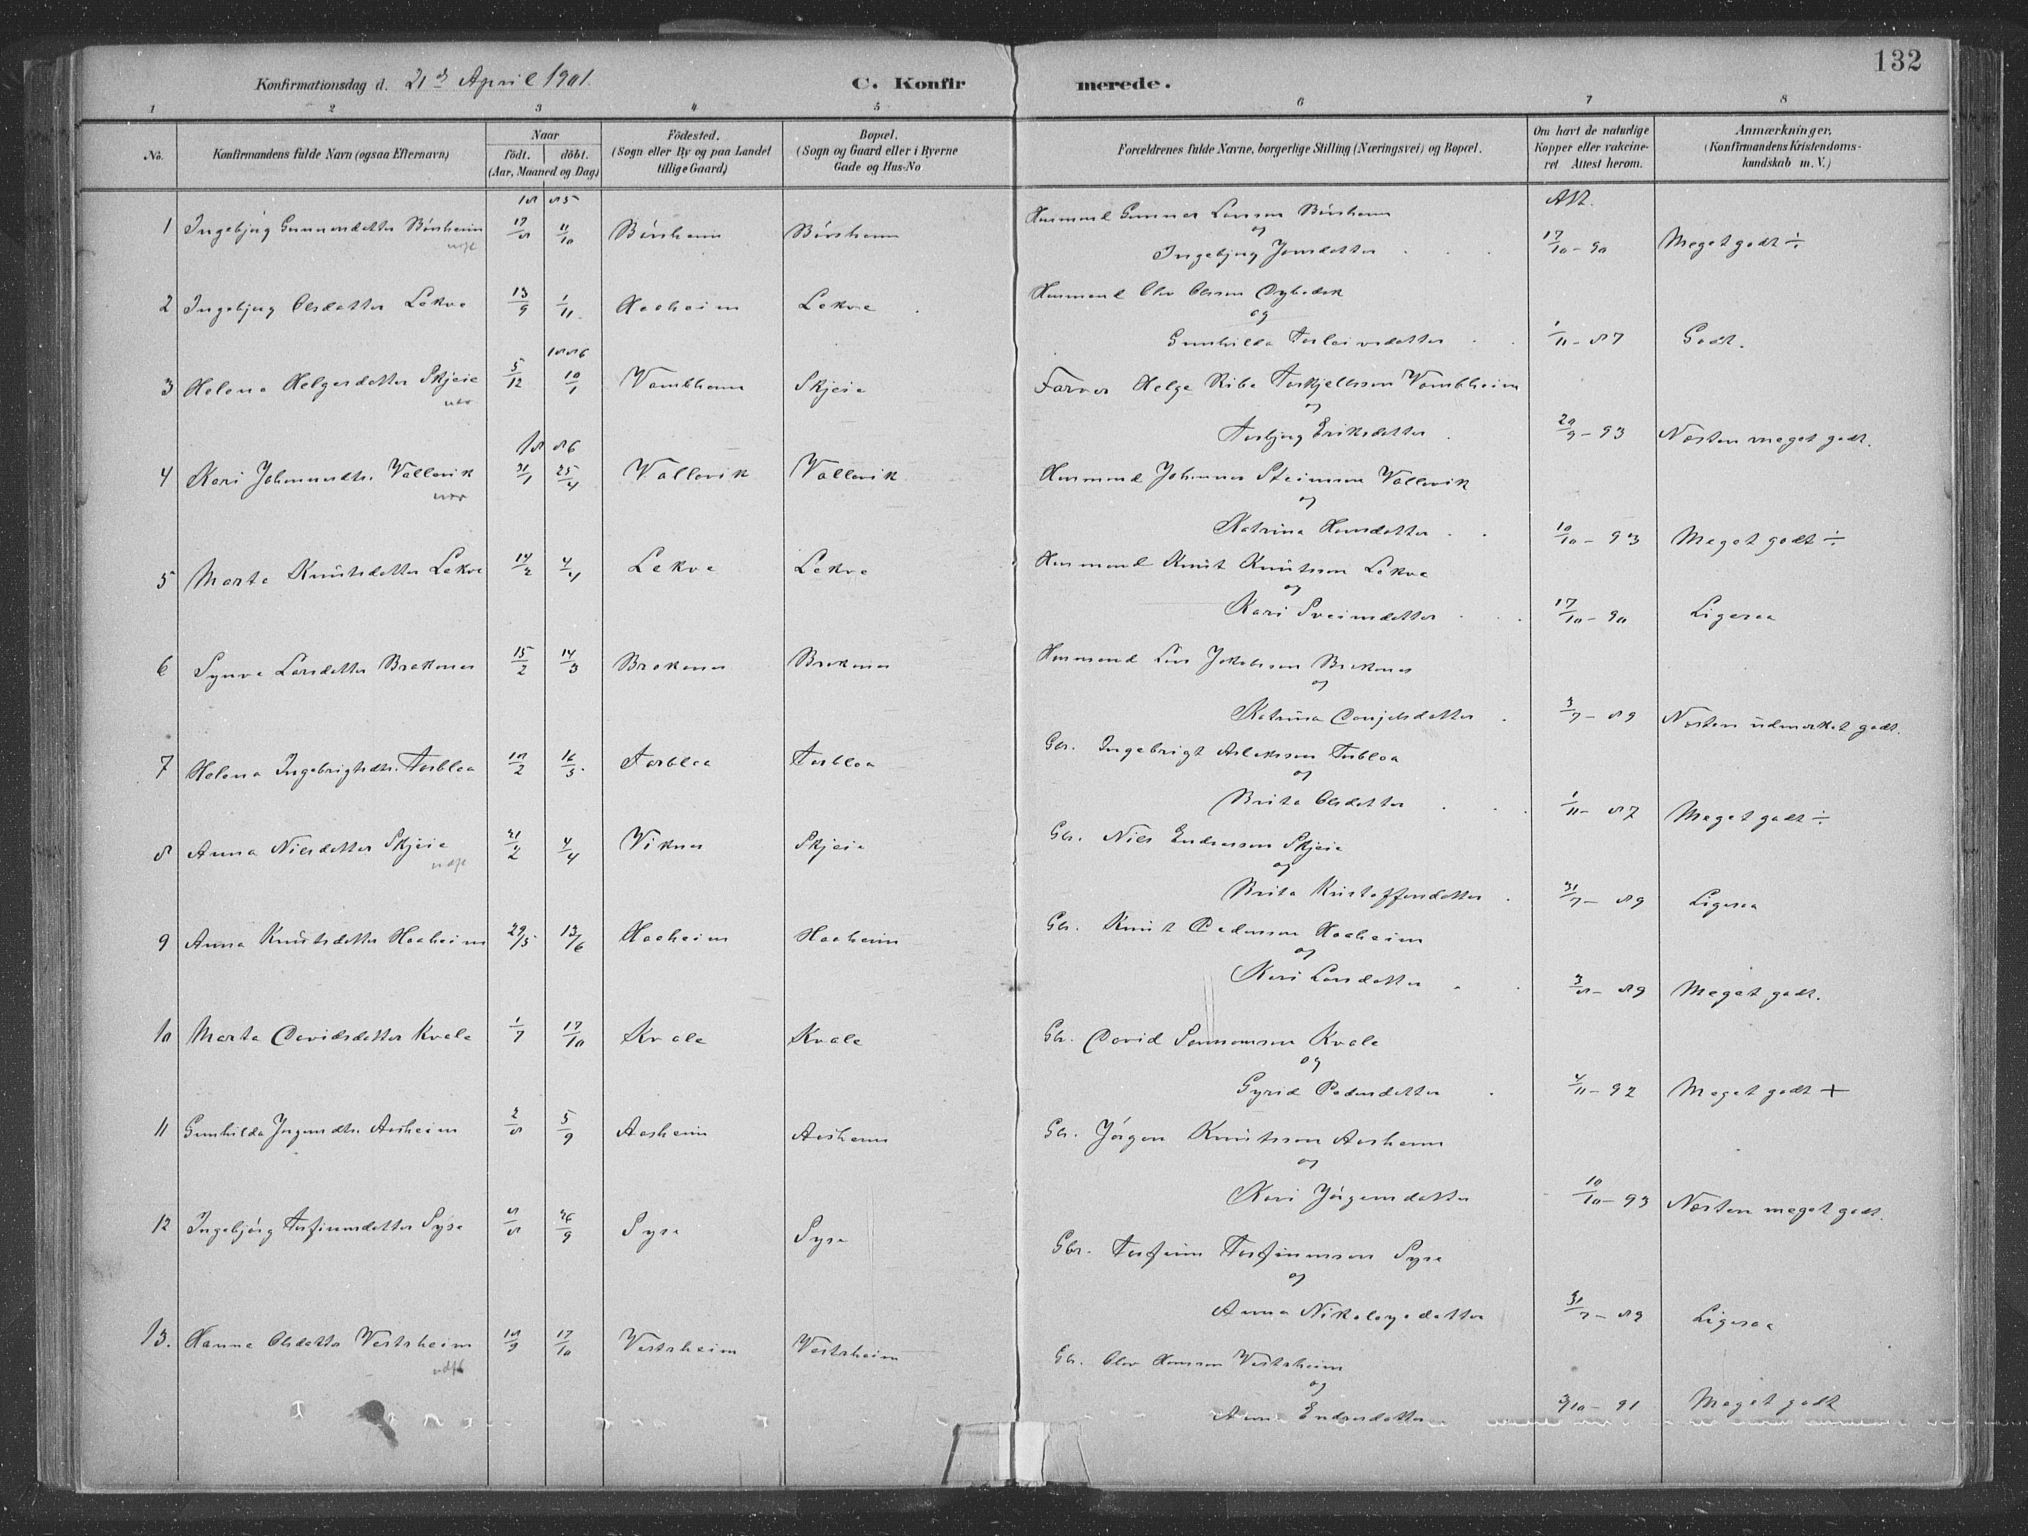 132
Konfirmationsdag d. 21de April 1901.
C. Konfirmerede.
1 2 3 4 5 6 7 8
No.
Konfirmandens fulde Navn (ogsaa Efternavn)
Naar
födt. döbt.
(Aar, Maaned og Dag)
Födested.
(Sogn eller By og paa Landet
tillige Gaard)
Bopæl.
(Sogn og Gaard eller i Byerne
Gade og Hus-No
Forældrenes fulde Navne, borgerlige Stilling (Næringsvei) og Bopæl.
Om havt de naturlige
Kopper eller vakcine-
ret Attest herom.
Anmærkninger,
(Konfirmandens Kristendoms-
kundskab m. V.)
1885
Att.
1 Ingebjørg Gunnarsdotter Børsheim 17/8 11/10 Børsheim Børsheim Husmand Gunnar Larsson Børsheim
udfl
og
Ingebjørg Jonsdotter 17/10 - 90 Meget godt ÷
2 Ingebjørg Olsdotter Lekve 13/9 1/11 Haaheim Lekve Husmand Olav Olsson
og
Gunhilda Torleivsdotter 1/11 - 87 Godt.
1886
3 Helena Helgesdotter Skjeie 5/12 10/1 Vambheim Skjeie Farver Helge Ribe Torkjellsson Vambheim
og
Torbjørg Eriksdotter 29/9 - 93 Næsten meget godt.
1886
4 Kari Johannesdtr. Vallevik 31/1 25/4 Vallevik Vallevik Husmand Johannes Steinsson Vallevik
og
Katrina Hansdotter 10/10 - 93 Meget godt ÷
5 Marta Knutsdotter Lekve 14/2 4/4 Lekve Lekve Husmand Knut Knutsson Lekve
og
Kari Sveinsdotter 17/10 - 90 Ligesaa
6 Synve Larsdotter Brakenes 15/2 14/3 Brakenes Brakenes Husmand Lars Jakobsson Brakenes
og
Katrina Danjelsdotter 3/7 - 89 Næsten udmerket godt.
7 Helena Ingebrigtsdtr. Torbloa 18/2 16/3 Torbloa Torbloa Gbr. Ingebrigt Aslaksson Torbloa
og
Brita Olsdotter 1/11 - 87 Meget godt ÷
8 Anna Nielsdotter Skjeie 21/2 4/4 Viknes Skjeie Gbr. Niels Endresson Skjeie
udfl
og
Brita Kristoffersdotter 31/7 - 89 Ligesaa
9 Anna Knutsdotter Haaheim 29/5 13/6 Haaheim Haaheim Gbr. Knut Pedersson Haaheim
og
Kari Larsdotter 3/8 - 89 Meget godt.
10 Marta Davidsdotter Kvale 1/7 17/10 Kvale Kvale Gbr. David Samsonson Kvale
og
Gyrid Pedersdotter 4/11 - 92 Meget godt +
11 Gunhilda Jørgensdtr. Aasheim 2/8 5/9 Aasheim Aasheim Gbr. Jørgen Knutsson Aasheim
og
Kari Jørgensdotter 10/10 - 93 Næsten meget godt.
12 Ingebjørg Torfinnsdotter Syse 8/8 26/9 Syse Syse Gbr. Torfinn Torfinnsson Syse
og
Anna Nikolaysdotter 31/7 - 89 Ligesaa
13. Hanna Olsdotter Vestrheim 18/9 17/10 Vestrheim Vestrheim Gbr. Olav Hansson Vestrheim
udfl
og
Anna Endresdotter 3/10 - 91 Meget godt